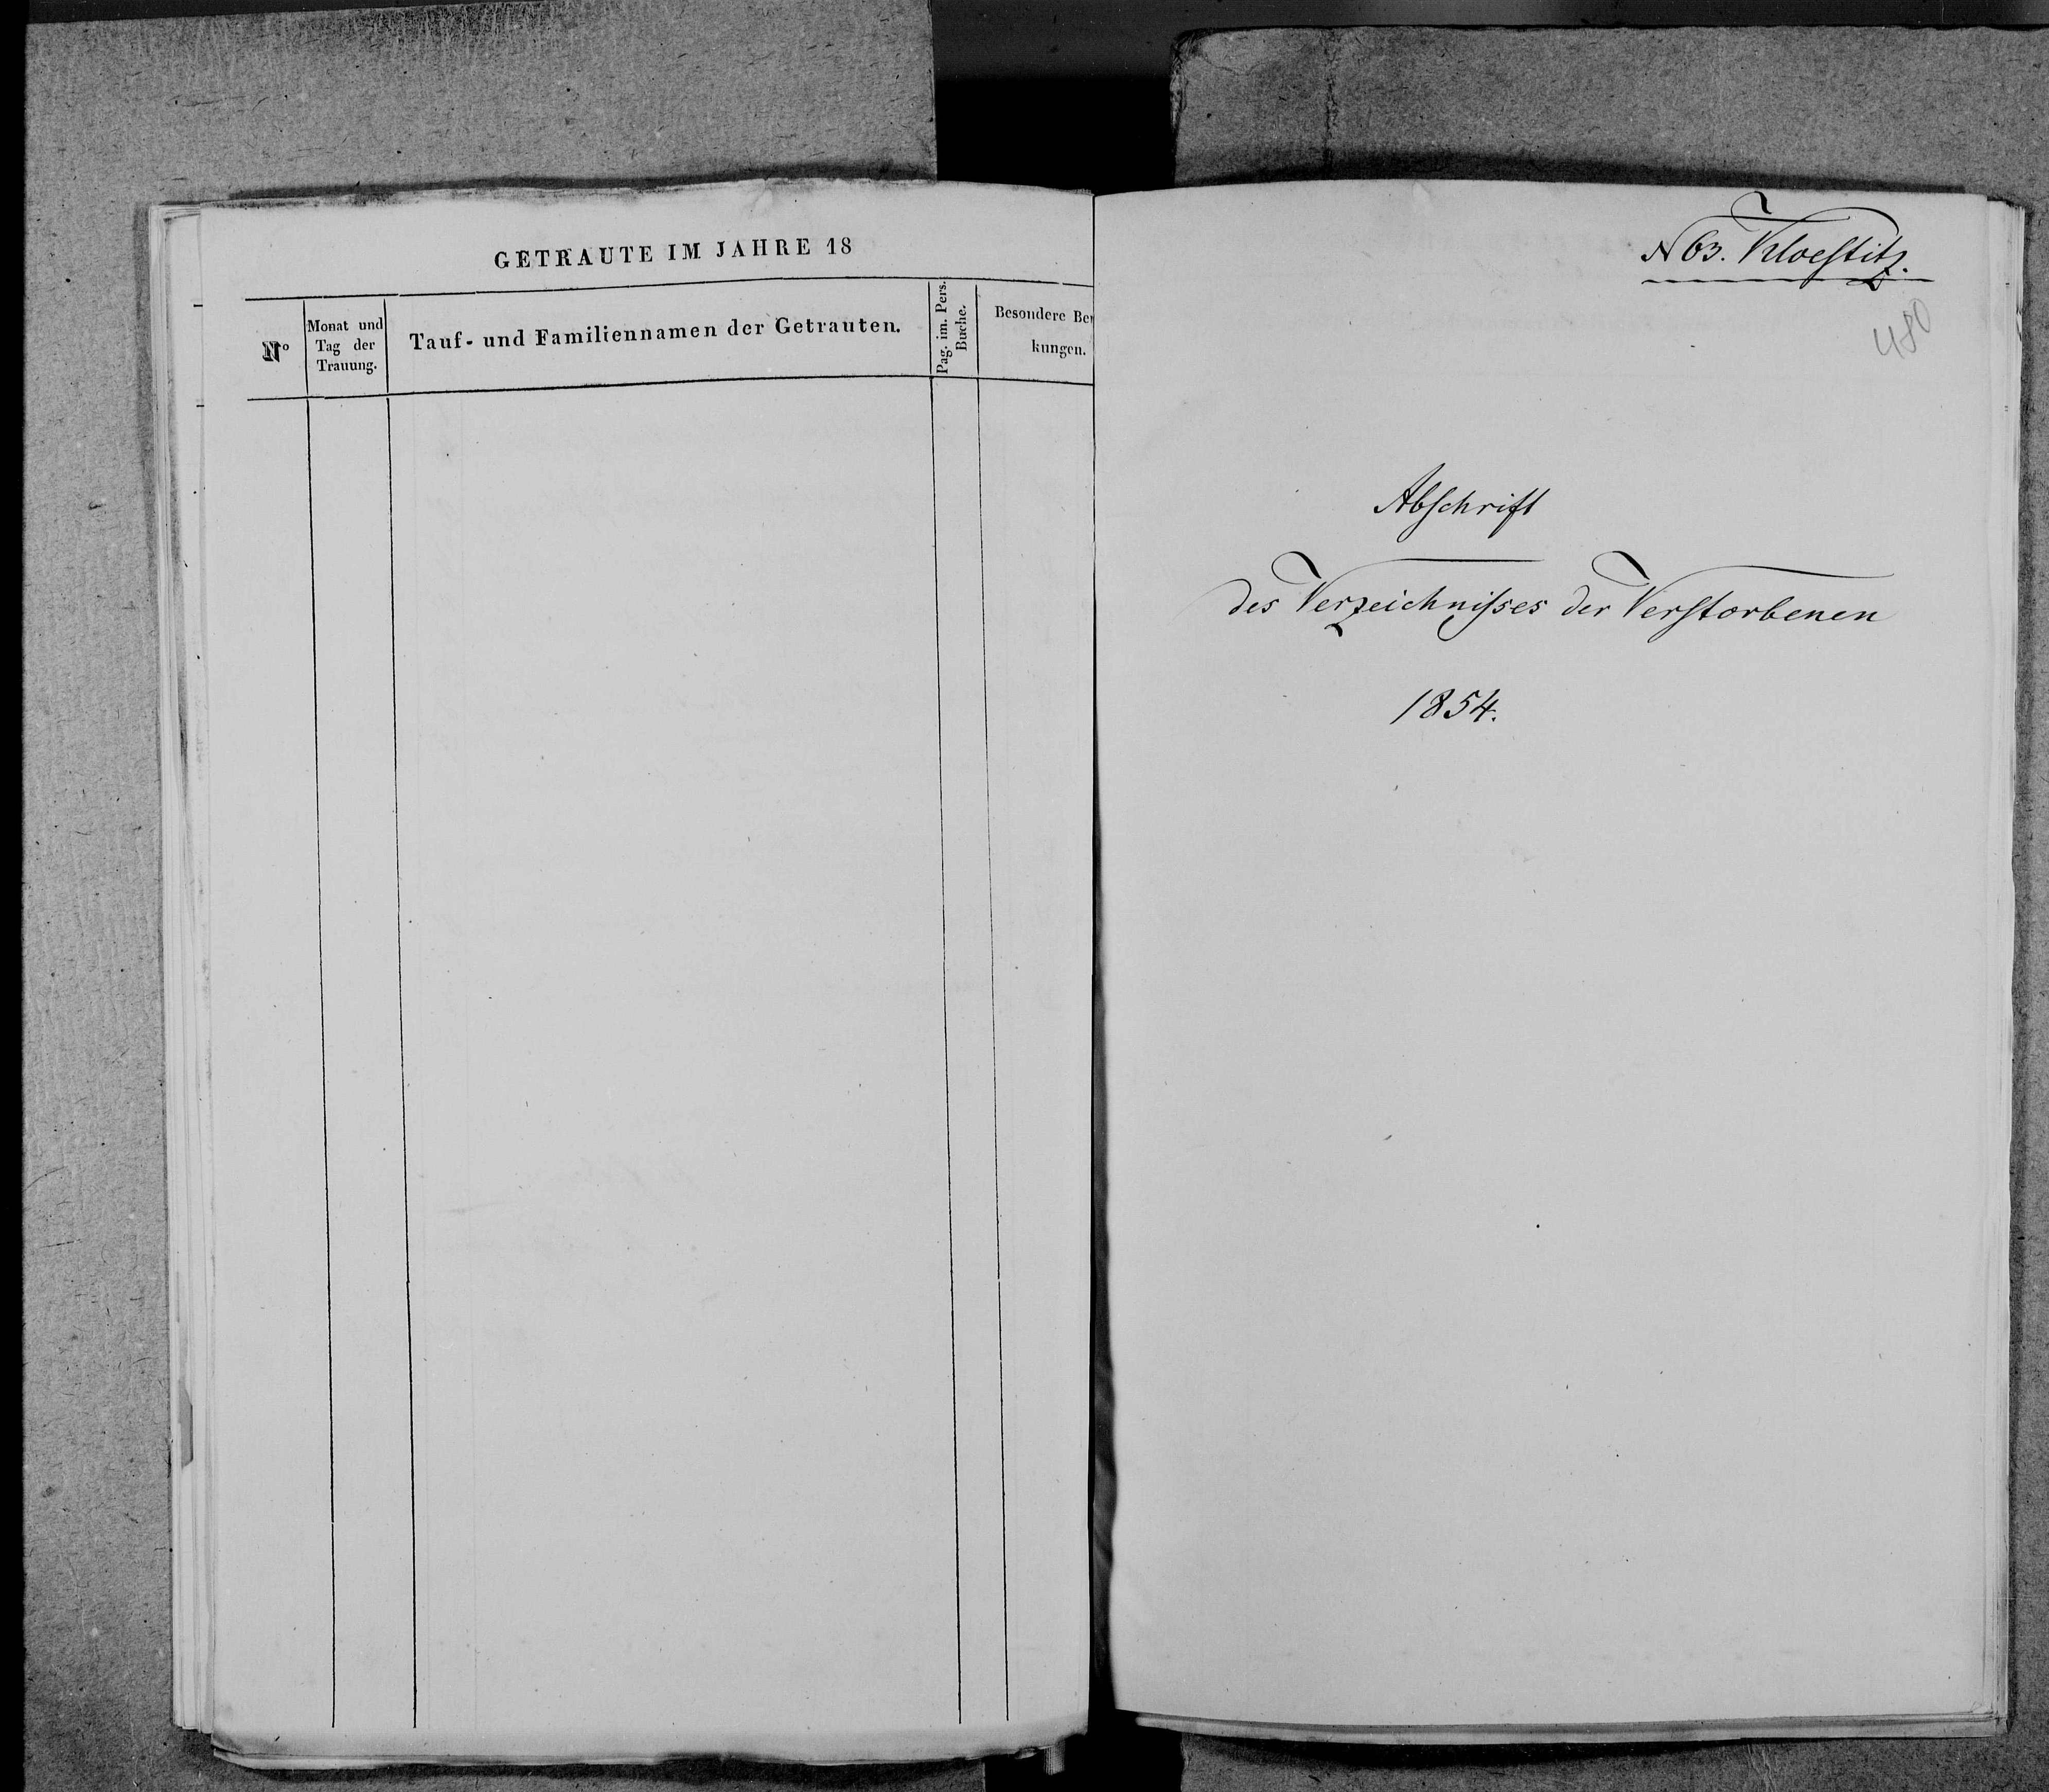 GETRAUTE IM JAHRE 18
N°
Monat und
Tag der
Trauung.
Tauf- und Familiennamen der Getrauten.
Pag. im. Pers.
Buche.
Besondere Ber
kungen.
N 63. Kloestitz.
480
Abschrift
des Verzeichnisses der Verstorbenen
1854.